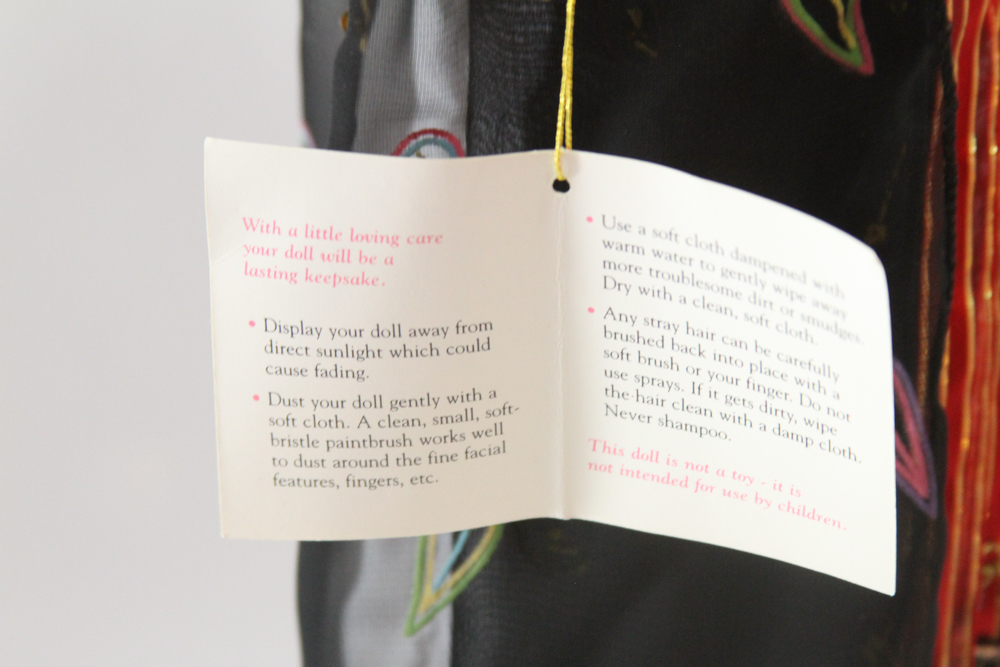 With a little loving care
your doll will be a
lasting keepsake.
• Display your doll away from
direct sunlight which could
cause fading.
• Dust your doll gently with a
soft cloth. A clean, small, soft-
bristle paintbrush works well
to dust around the fine facial
features, fingers, etc.
• Use a soft cloth dampened with
warm water to gently wipe away
more troublesome dirt or smudges.
Dry with a clean, soft cloth.
• Any stray hair can be carefully
brushed back into place with a
soft brush or your finger. Do not
use sprays. If it gets dirty, wipe
the hair clean with a damp cloth.
Never shampoo.
This doll is not a toy - it is
not intended for use by children.